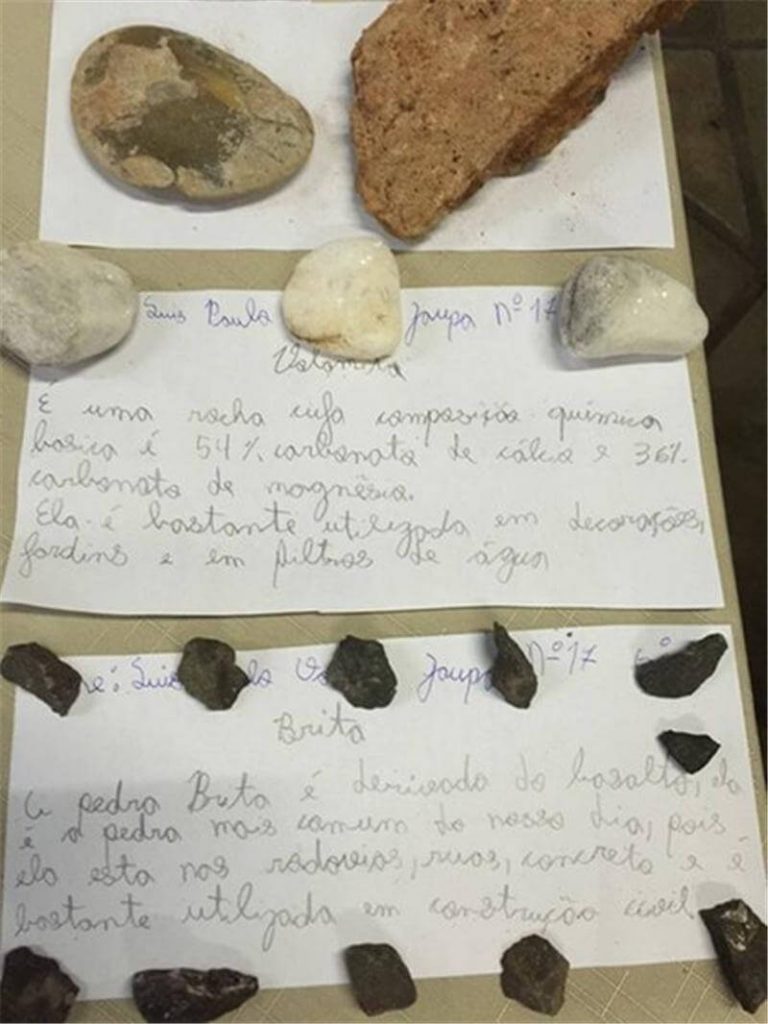 Luis Paulo Jaupa Nº 17
Dolomita
É uma rocha cuja composição química
basica é 54% carbonato de cálcio e 36%
carbonato de magnésio.
Ela é bastante utilizada em decorações,
jardins e em filtros de água
e: Luis Jaupa Nº 17
Brita
A pedra Brita é derivada do basalto, ela
é a pedra mais comum do nosso dia, pois
ela esta nas rodovias, ruas, concreto e é
bastante utilizada em construção civil